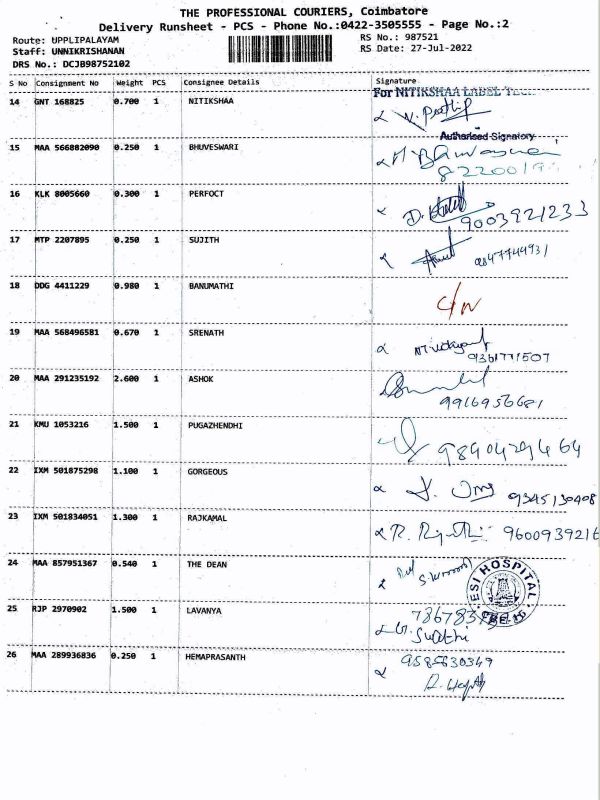 THE PROFESSIONAL COURIERS, Coimbatore
Delivery Runsheet - PCS - Phone No.:0422-3505555 - Page No.:2
Route: UPPLIPALAYAM RS No.: 987521
Staff: UNNIKRISHANAN RS Date: 27-Jul-2022
DRS No.: DCJB98752102
S No Consignment No Weight PCS Consignee Details Signature
For NITIKSHAA LABEL
14 GNT 168825 0.700 1 NITIKSHAA
Authorised Signatory
15 MAA 566882090 0.250 1 BHUVESWARI
16 KLK 8005660 0.300 1 PERFOCT
9003921233
17 MTP 2207895 0.250 1 SUJITH
9847744931
18 DDG 4411229 0.980 1 BANUMATHI
C/N
19 MAA 568496581 0.670 1 SRENATH
9361771507
20 MAA 291235192 2.600 1 ASHOK
9916956681
21 KMU 1053216 1.500 1 PUGAZHENDHI
22 IXM 501875298 1.100 1 GORGEOUS
9345130408
23 IXM 501834051 1.300 1 RAJKAMAL
9600939216
24 MAA 857951367 0.540 1 THE DEAN
ESI HOSPITAL
25 RJP 2970902 1.500 1 LAVANYA
26 MAA 289936836 0.250 1 HEMAPRASANTH
9585630349